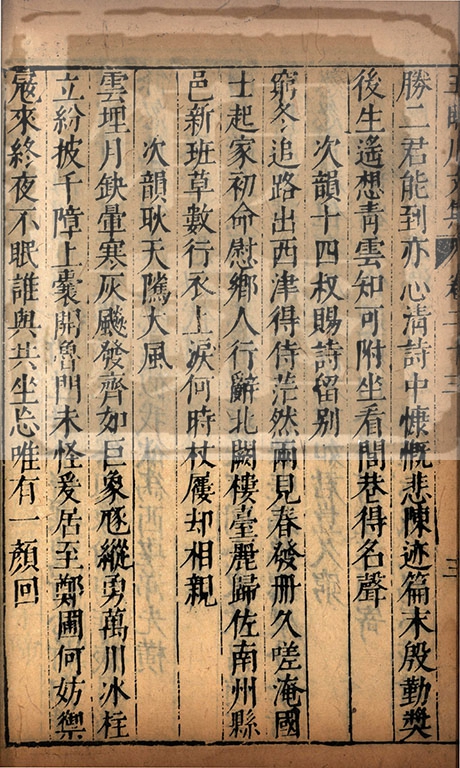 王臨川文集 卷二十三 三
勝二君能到亦心清詩中慷慨悲陳迹篇末殷勤奬
後生遙想青雲知可附坐看閭巷得名聲
次韻十四叔賜詩留别
窮冬追路出西津得侍茫然兩見春發册久嗟淹國
士起家初命慰鄉人行辭北闕樓臺麗歸佐南州縣
邑新班草數行衣上淚何時杖屨却相親
次韻耿天隲大風
雲埋月缺暈寒灰飈發齊如巨象豗縱勇萬川冰柱
立紛披千障上囊開魯門未怪爰居至鄭圃何妨禦
寇來終夜不眠誰與共坐忘唯有一顔回